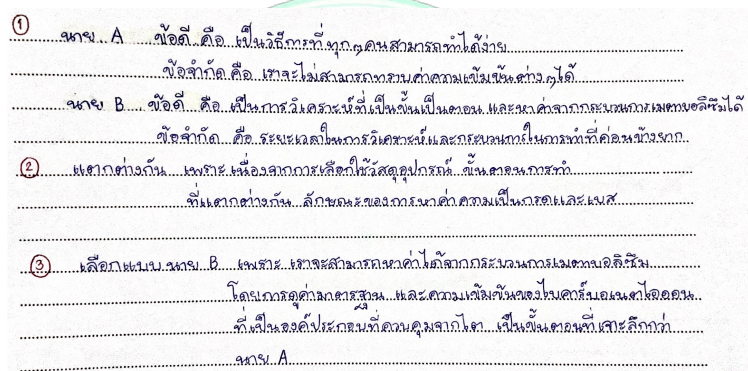 ① นาย A ข้อดี คือ เป็นวิธีการที่ทุกๆคนสามารถทำได้ง่าย
ข้อจำกัด คือ เราจะไม่สามารถทราบค่าความเข้มข้นต่างๆได้
นาย B ข้อดี คือ เป็นการวิเคราะห์ที่เป็นขั้นเป็นตอน และหาค่าจากกระบวนการเมตาบอลิซึมได้
ข้อจำกัด คือ ระยะเวลาในการวิเคราะห์และกระบวนการในการทำที่ค่อนข้างยาก
② แตกต่างกัน เพราะ เนื่องจากการเลือกใช้วัสดุอุปกรณ์ ขั้นตอนการทำ
ที่แตกต่างกัน ลักษณะของการหาค่าความเป็นกรดและเบส
③ เลือกแบบ นาย B เพราะ เราจะสามารถหาค่าได้จากกระบวนการเมตาบอลิซึม
โดยการดูค่ามาตารฐาน และความเข้มข้นของไบคาร์บอเนตไอออน
ที่เป็นองค์ประกอบที่ควบคุมจากไต เป็นขั้นตอนที่เจาะลึกกว่า
นาย A